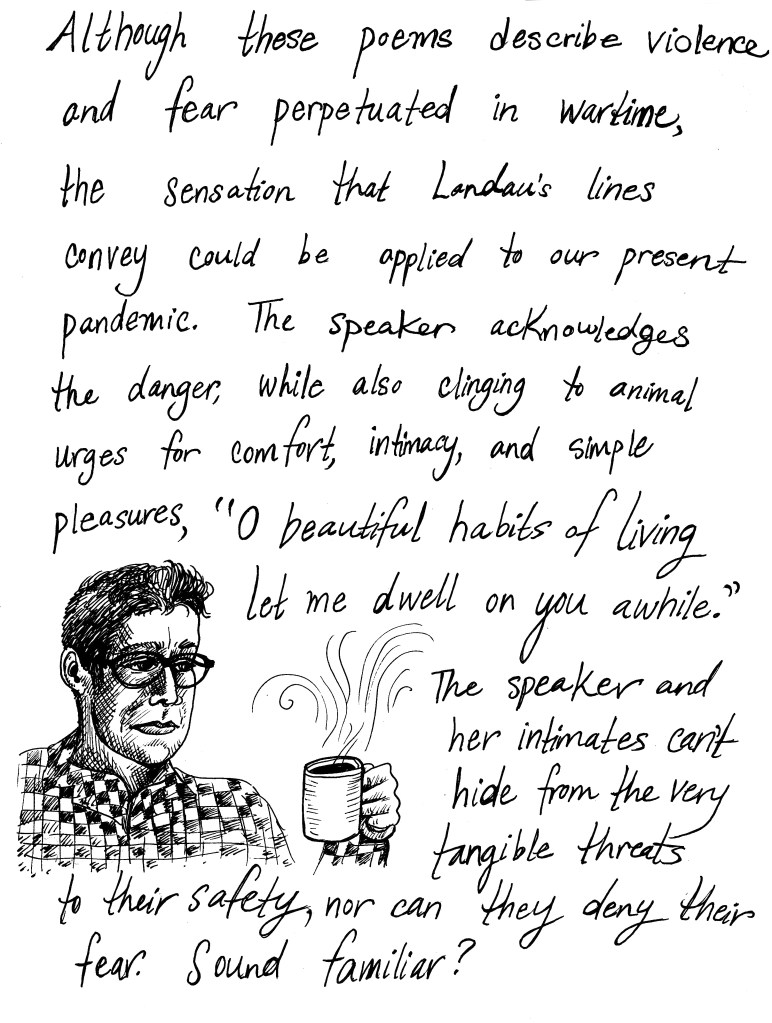 Although these poems describe violence
and fear perpetuated in wartime,
the sensation that Landau's lines
convey could be applied to our present
pandemic. The speaker acknowledges
the danger, while also clinging to animal
urges for comfort, intimacy, and simple
pleasures, "O beautiful habits of living
let me dwell on you awhile."
The speaker and
her intimates can't
hide from the very
tangible threats
to their safety, nor can they deny their
fear. Sound familiar?